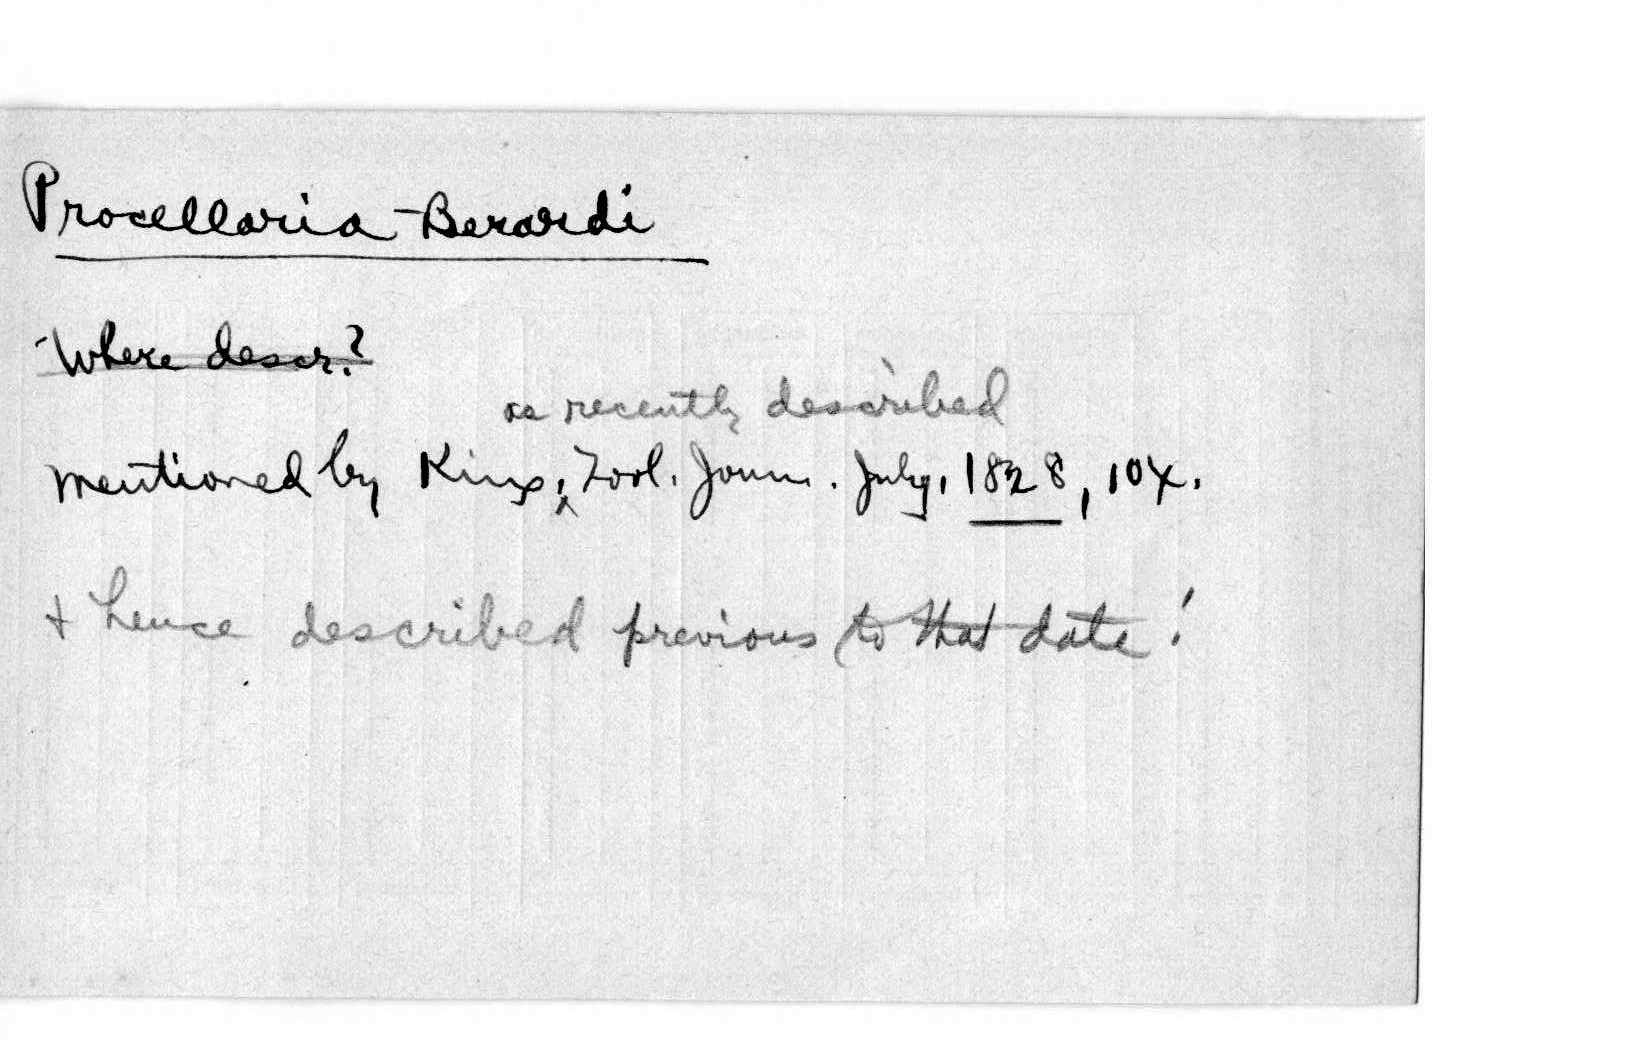 Procellaria Berardi
Where descr.?
as recently described
Mentioned by King, Zool. Journ. July, 1828, 104.
+ hence described previous to that date!